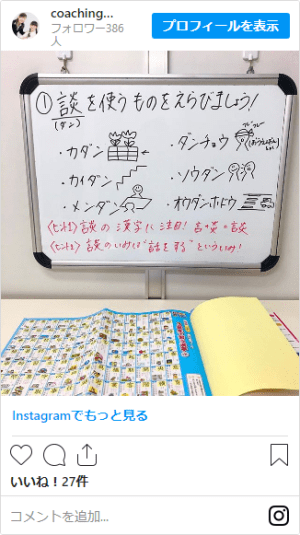 coaching...
フォロワー386
人
プロフィールを表示
①談を使うものをえらびましょう!
(ダン)
・カダン
・ダンチョウ
・カイダン
・ソウダン
・メンダン
・オウダンホドウ
〈ヒント1〉談の漢字に注目! 言+炎=談
〈ヒント2〉談のいみは"話をする"といういみ!
Instagramでもっと見る
いいね！27件
コメントを追加...